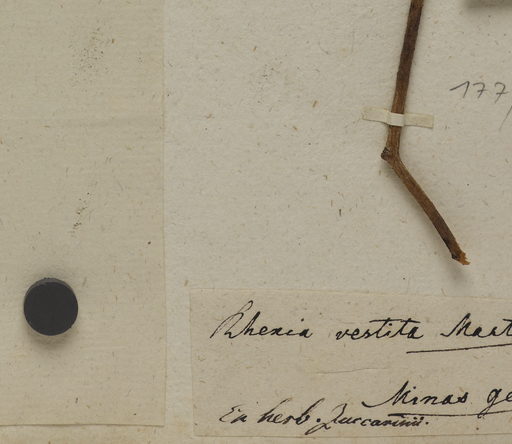 177
Rhexia vestita Mart
Minas ge
Ex herb. Zuccarinii.